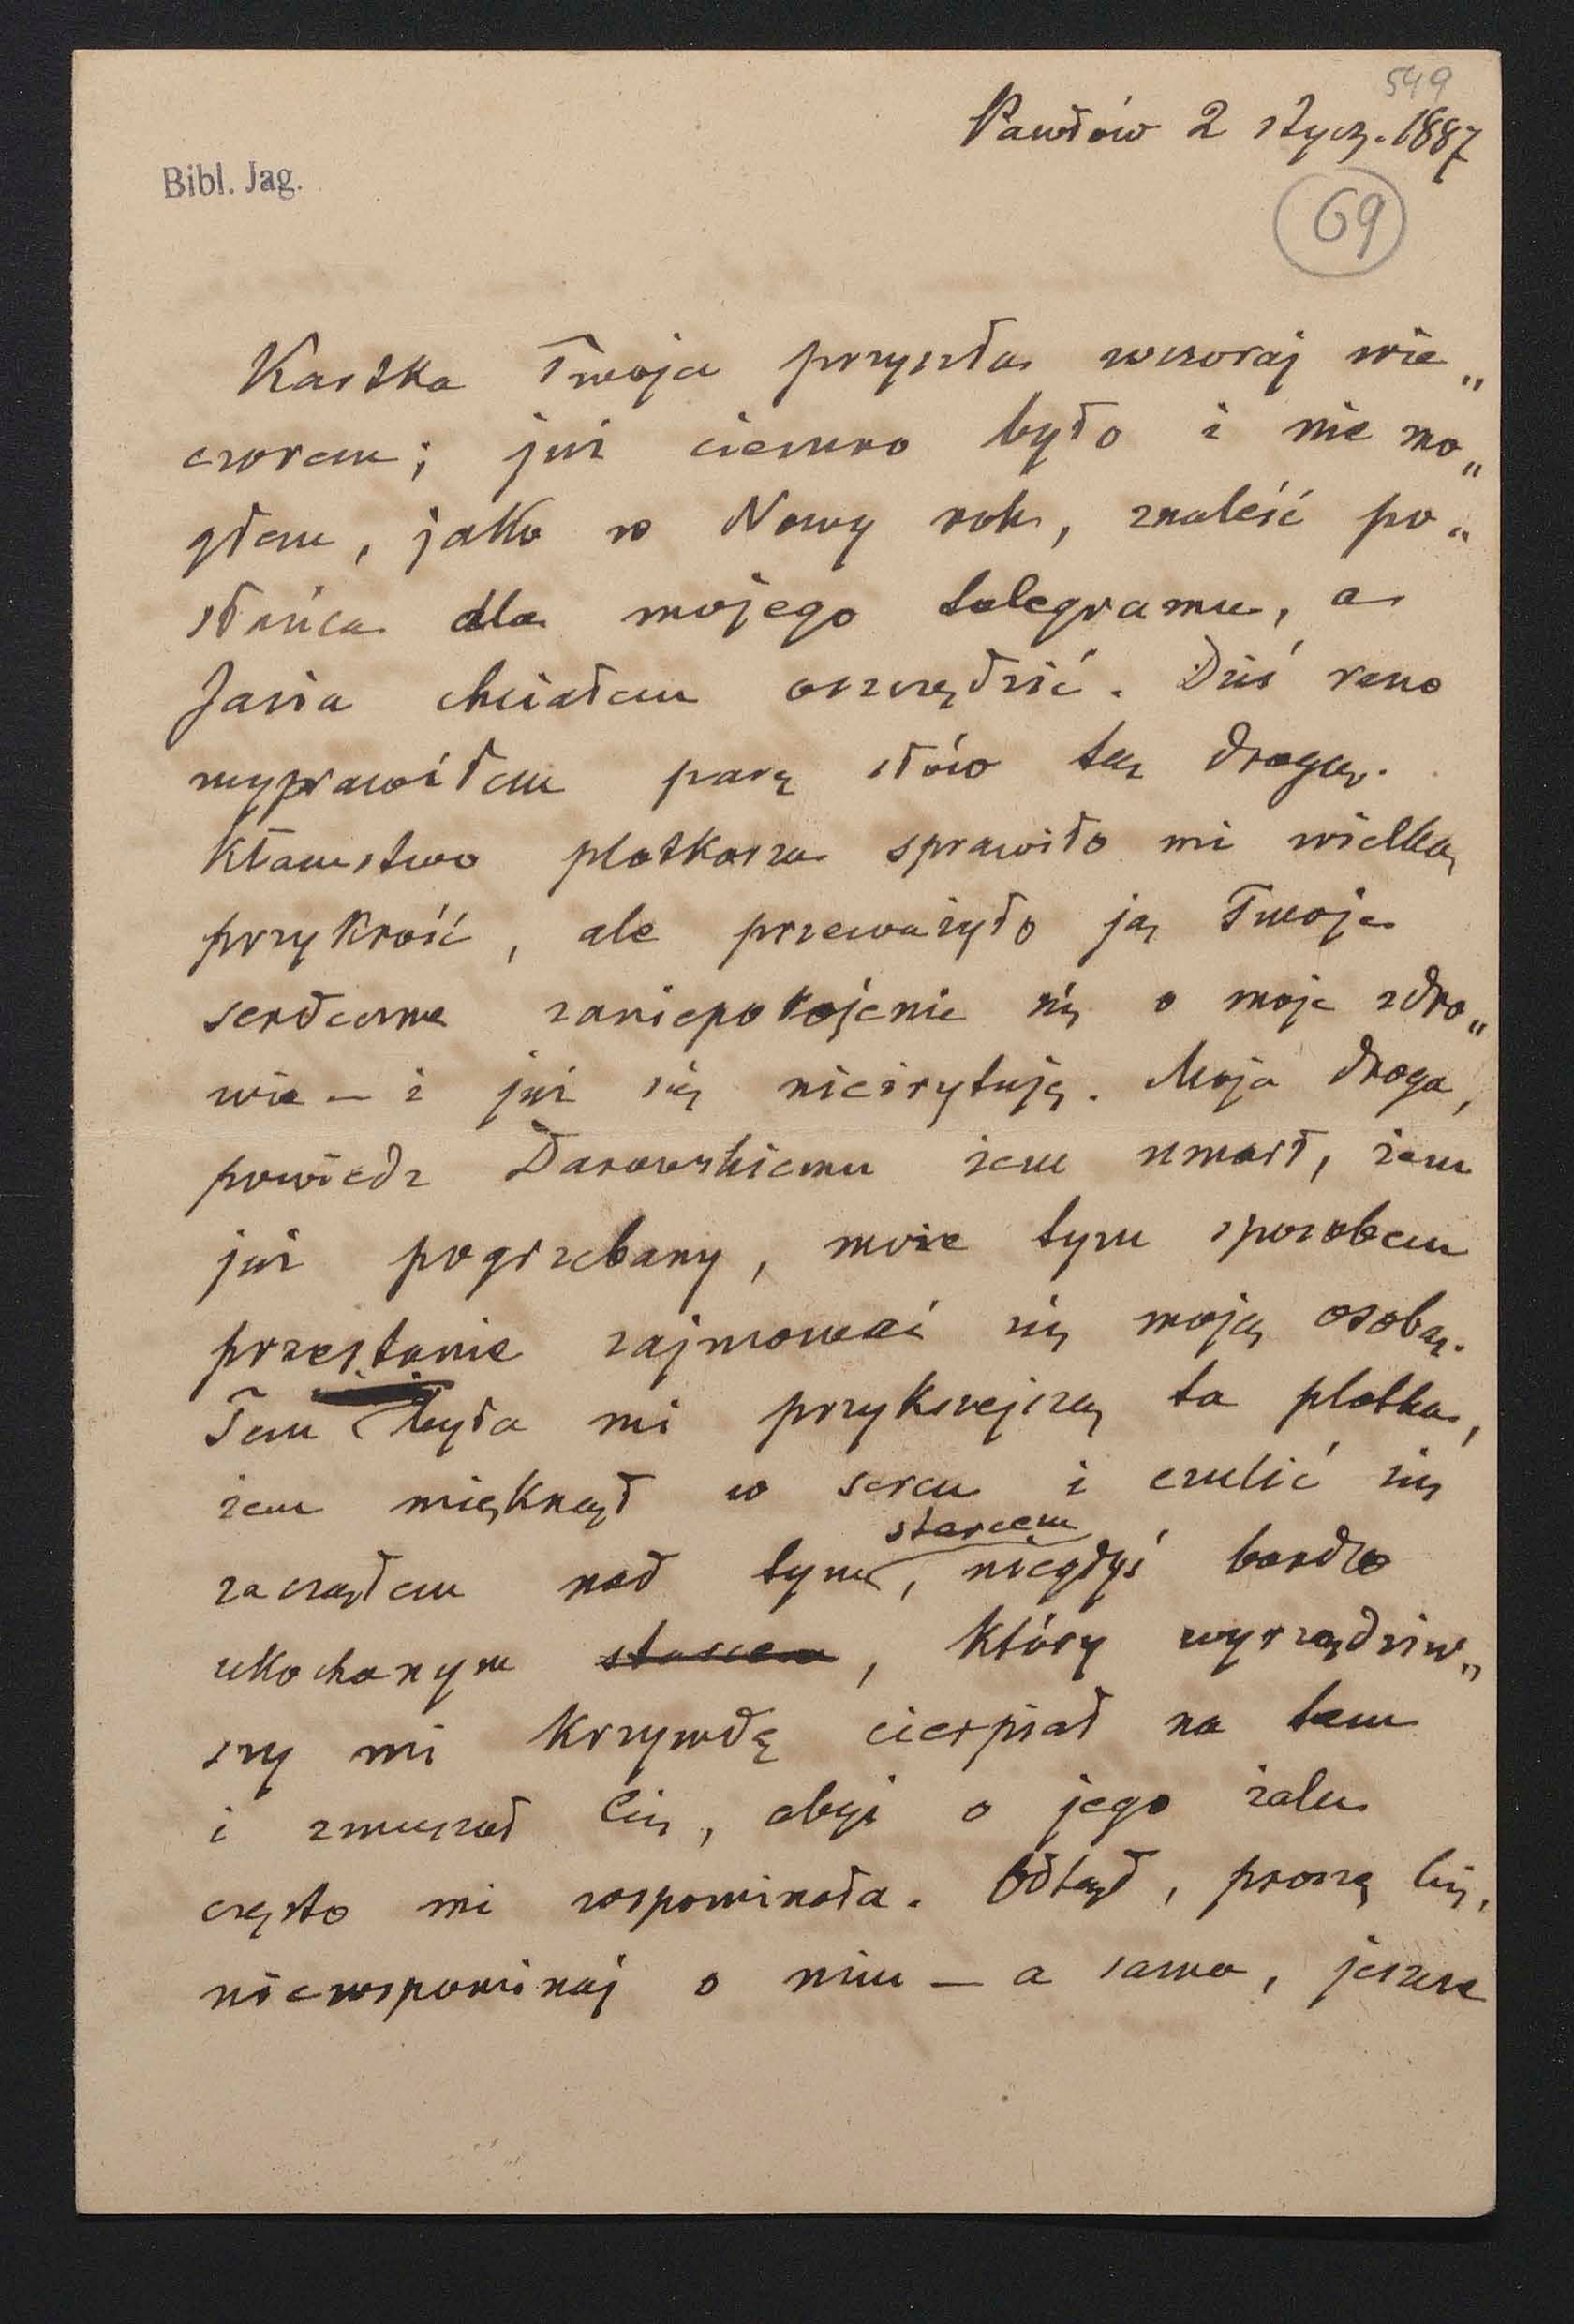 549
Pawłów 2 stycz. 1887
Bibl. Jag.
69
Kartka Twoja przyszła wczoraj wie„
czorem; już ciemno było i nie mo„
głem, jako w Nowy rok, znaleść po„
słańca dla mojego telegramu, a
Jasia chciałem oszczędzić. Dziś rano
wyprawiłem parę słów tą drogą.
Kłamstwo plotkarza sprawiło mi wielką
przykrość, ale przeważyło ją Twoje
serdeczne zaniepokojenie się o moje zdro„
wie — i już się nieirytuję. Moja droga,
powiedz Darowskiemu żem umarł, żem
już pogrzebany, może tym sposobem
przestanie zajmować się moją osobą.
Tem była mi przykrzejszą ta plotka,
żem mięknął w sercu i czulić się
starcem
zacząłem nad tym, niegdyś bardzo
ukochanym starcem, który wyrządziw„
szy mi krzywdę cierpiał na tem
i zmuszał Cię, abyś o jego żalu
często mi wspominała. Odtąd, proszę Cię,
niewspominaj o nim — a sama, jeszcze